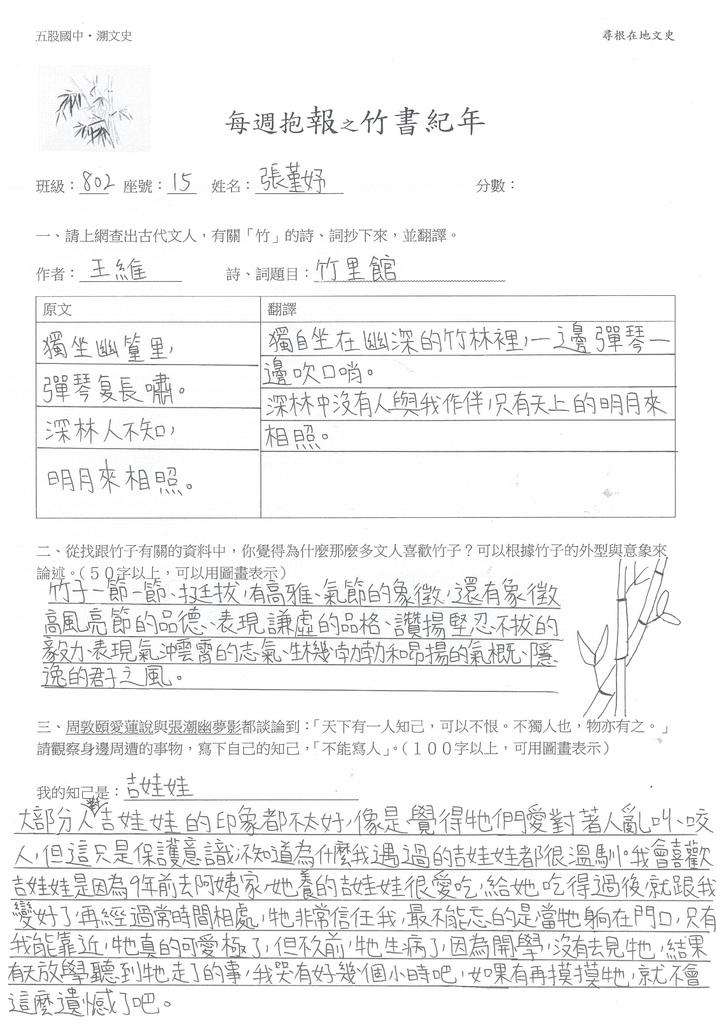 五股國中・溯文史
尋根在地文史
每週抱報之竹書紀年
班級：802 座號：15 姓名：張堇妤 分數：
一、請上網查出古代文人，有關「竹」的詩、詞抄下來，並翻譯。
作者：王維 詩、詞題目：竹里館
原文
獨坐幽篁里，
彈琴复長嘯。
深林人不知，
明月來相照。
翻譯
獨自坐在幽深的竹林裡，一邊彈琴一
邊吹口哨。
深林中沒有人與我作伴，只有天上的明月來
相照。
二、從找跟竹子有關的資料中，你覺得為什麼那麼多文人喜歡竹子？可以根據竹子的外型與意象來
論述。（50字以上，可以用圖畫表示）
竹子一節一節、挺拔，有高雅、氣節的象徵，還有象徵
高風亮節的品德、表現謙虛的品格、讚揚堅忍不拔的
毅力、表現氣沖雲霄的志氣、生機勃勃和昂揚的氣概、隱
逸的君子之風。
三、周敦頤愛蓮說與張潮幽夢影都談論到：「天下有一人知己，可以不恨。不獨人也，物亦有之。」
請觀察身邊周遭的事物，寫下自己的知己，「不能寫人」。（100字以上，可用圖畫表示）
我的知己是：吉娃娃
大部分人對吉娃娃的印象都不太好，像是覺得牠們愛對著人亂叫、咬
人，但這只是保護意識，不知道為什麼我遇過的吉娃娃都很溫馴。我會喜歡
吉娃娃是因為9年前去阿姨家，她養的吉娃娃很愛吃，給她吃得過後就跟我
變好了，再經過常時間相處，牠非常信任我，最不能忘的是當牠躺在門口，只有
我能靠近，牠真的可愛極了，但不久前，牠生病了，因為開學，沒有去見牠，結果
有天放學聽到牠走了的事，我哭有好幾個小時吧，如果有再摸摸牠，就不會
這麼遺憾了吧。